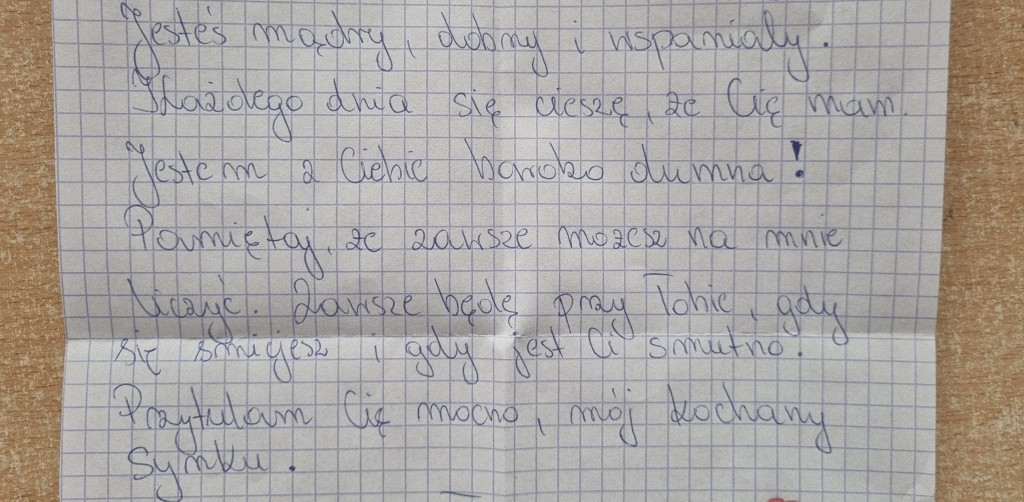 Jesteś mądry, dobry i wspaniały.
Każdego dnia się cieszę, że Cię mam.
Jestem z Ciebie bardzo dumna!
Pamiętaj, że zawsze możesz na mnie
liczyć. Zawsze będę przy Tobie, gdy
się śmiejesz i gdy jest Ci smutno.
Przytulam Cię mocno, mój kochany
Synku.